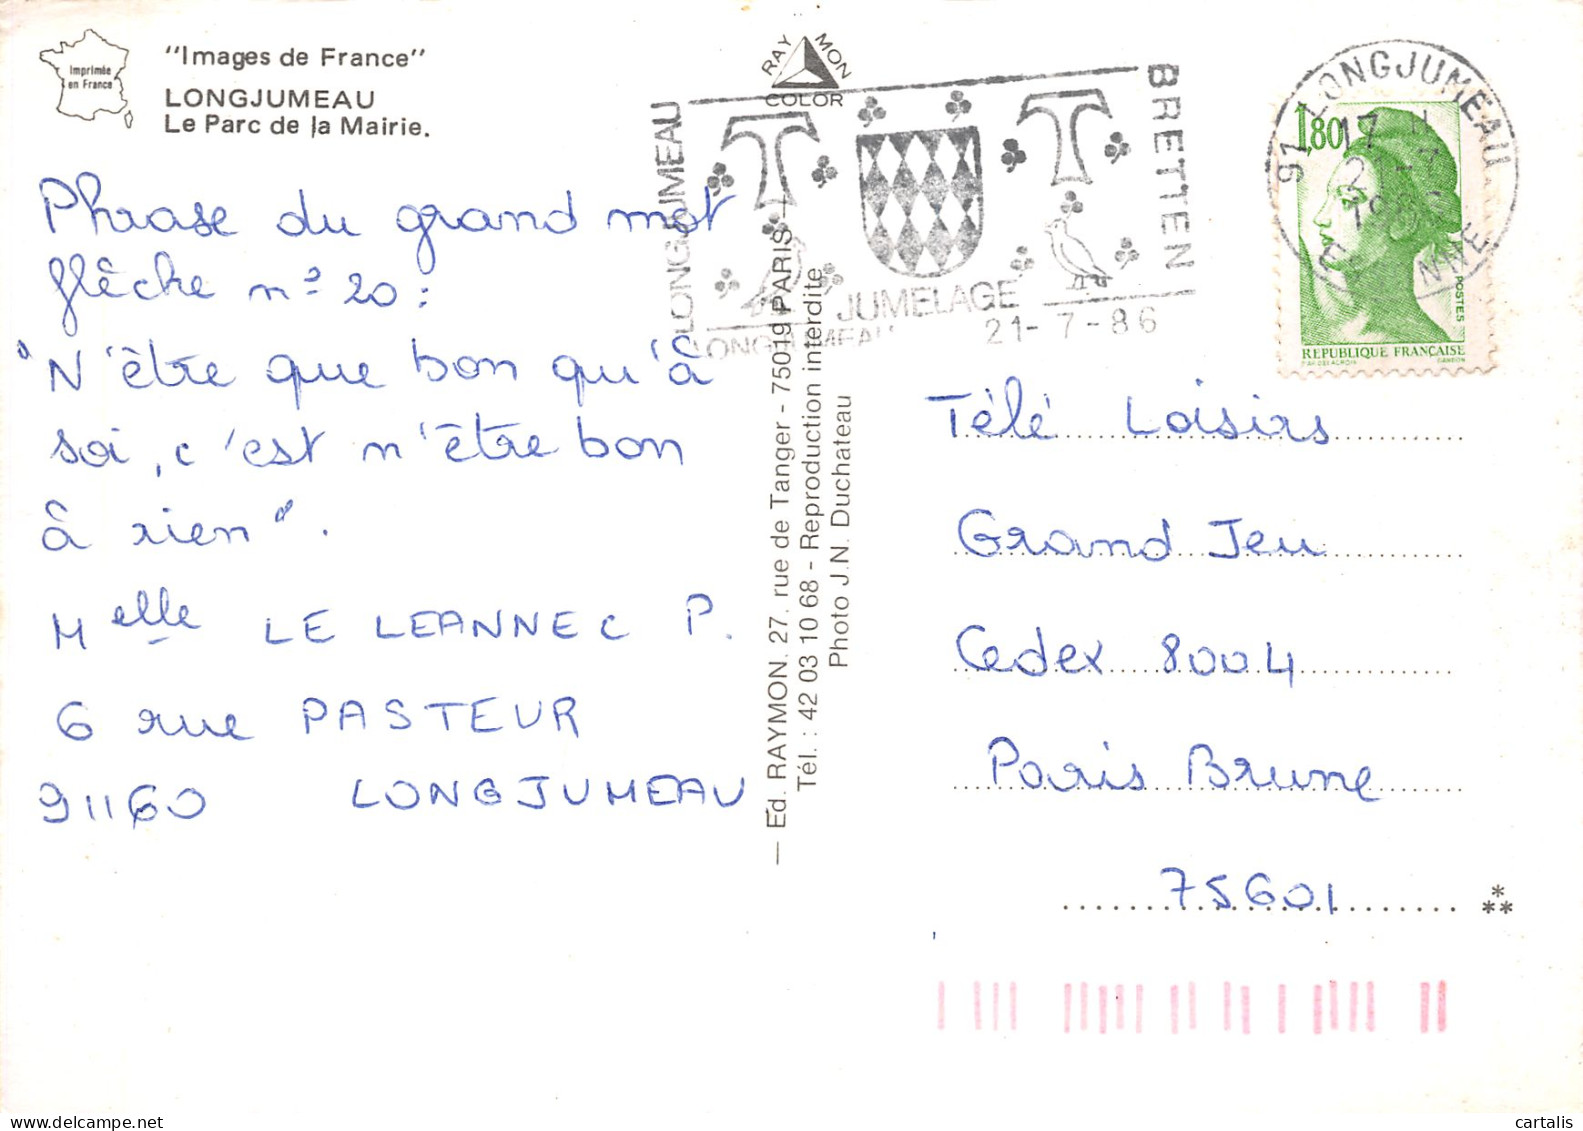 Imprimée
en France
"Images de France"
LONGJUMEAU
Le Parc de la Mairie.
RAYMON
COLOR
Phrase du grand mot
flêche n° 20 :
"N'être que bon qu'à
soi, c'est n'être bon
à rien".
Melle LE LEANNEC P.
6 rue PASTEUR
91160 LONGJUMEAU
— Ed. RAYMON. 27. rue de Tanger - 75019 PARIS —
Tél. : 42 03 10 68 - Reproduction interdite
Photo J.N. Duchateau
LONGJUMEAU
BRETTEN
JUMELAGE
LONGJUMEAU
21-7-86
91 LONGJUMEAU
17 H
ESSONNE
1,80
POSTES
REPUBLIQUE FRANÇAISE
Télé Loisirs
Grand Jeu
Cedex 8004
Paris Brune
75601